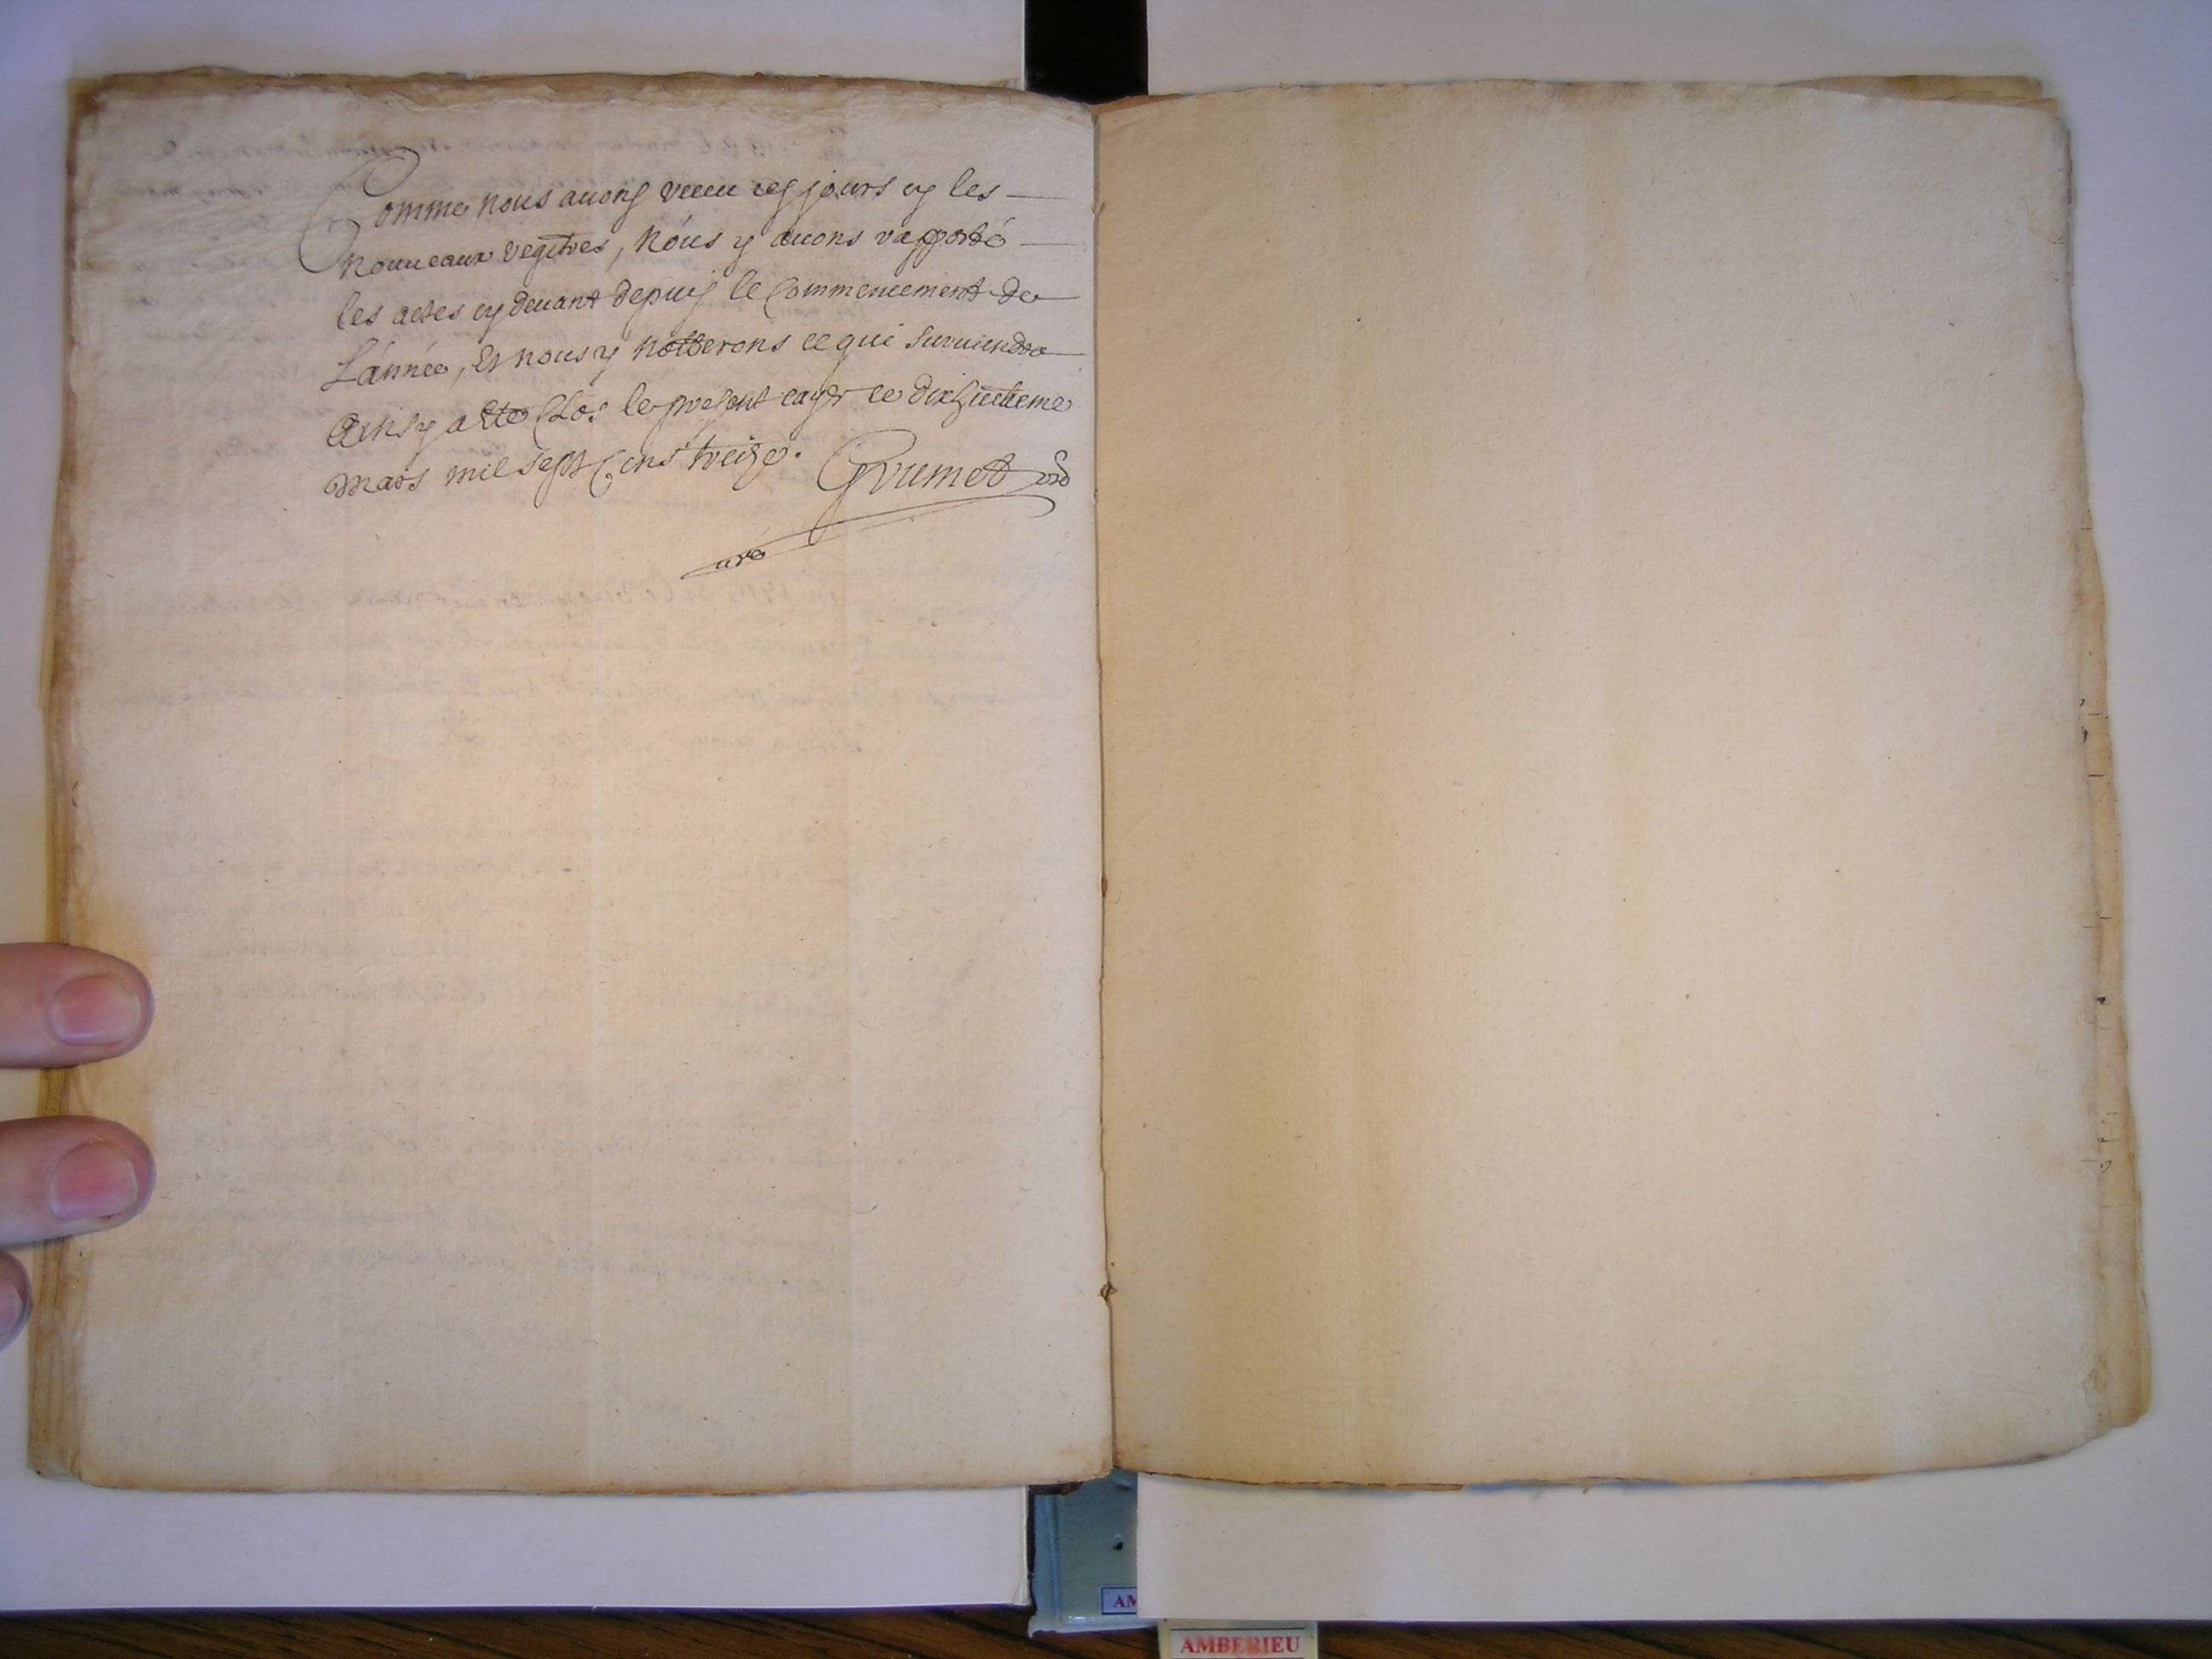 Comme nous auons receu ces jours cy les
nouueaux regitres, nous y auons rapporté
les actes cy deuant depuis le Commencement de
L'année, Et nous y notterons ce qui suruiendra
Ainsy a Eté Clos le present cayer ce dixhuitieme
mars mil sept Cens treize. Grumet
uré
AM
AMBERIEU